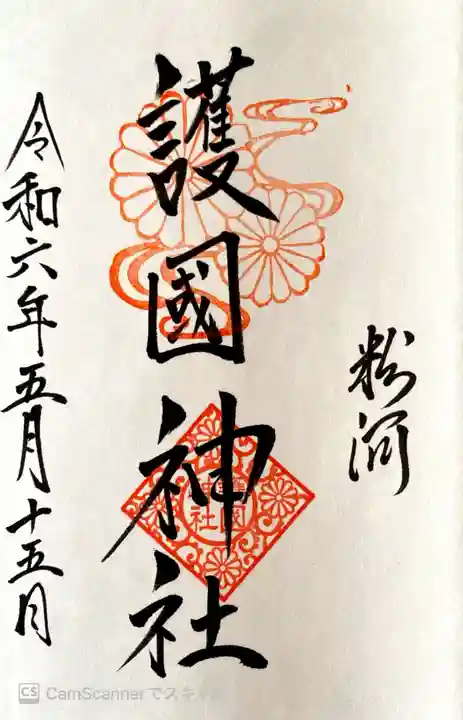 粉河
護國神社
令和六年五月十五日
護國
神社
CS CamScannerでスキ